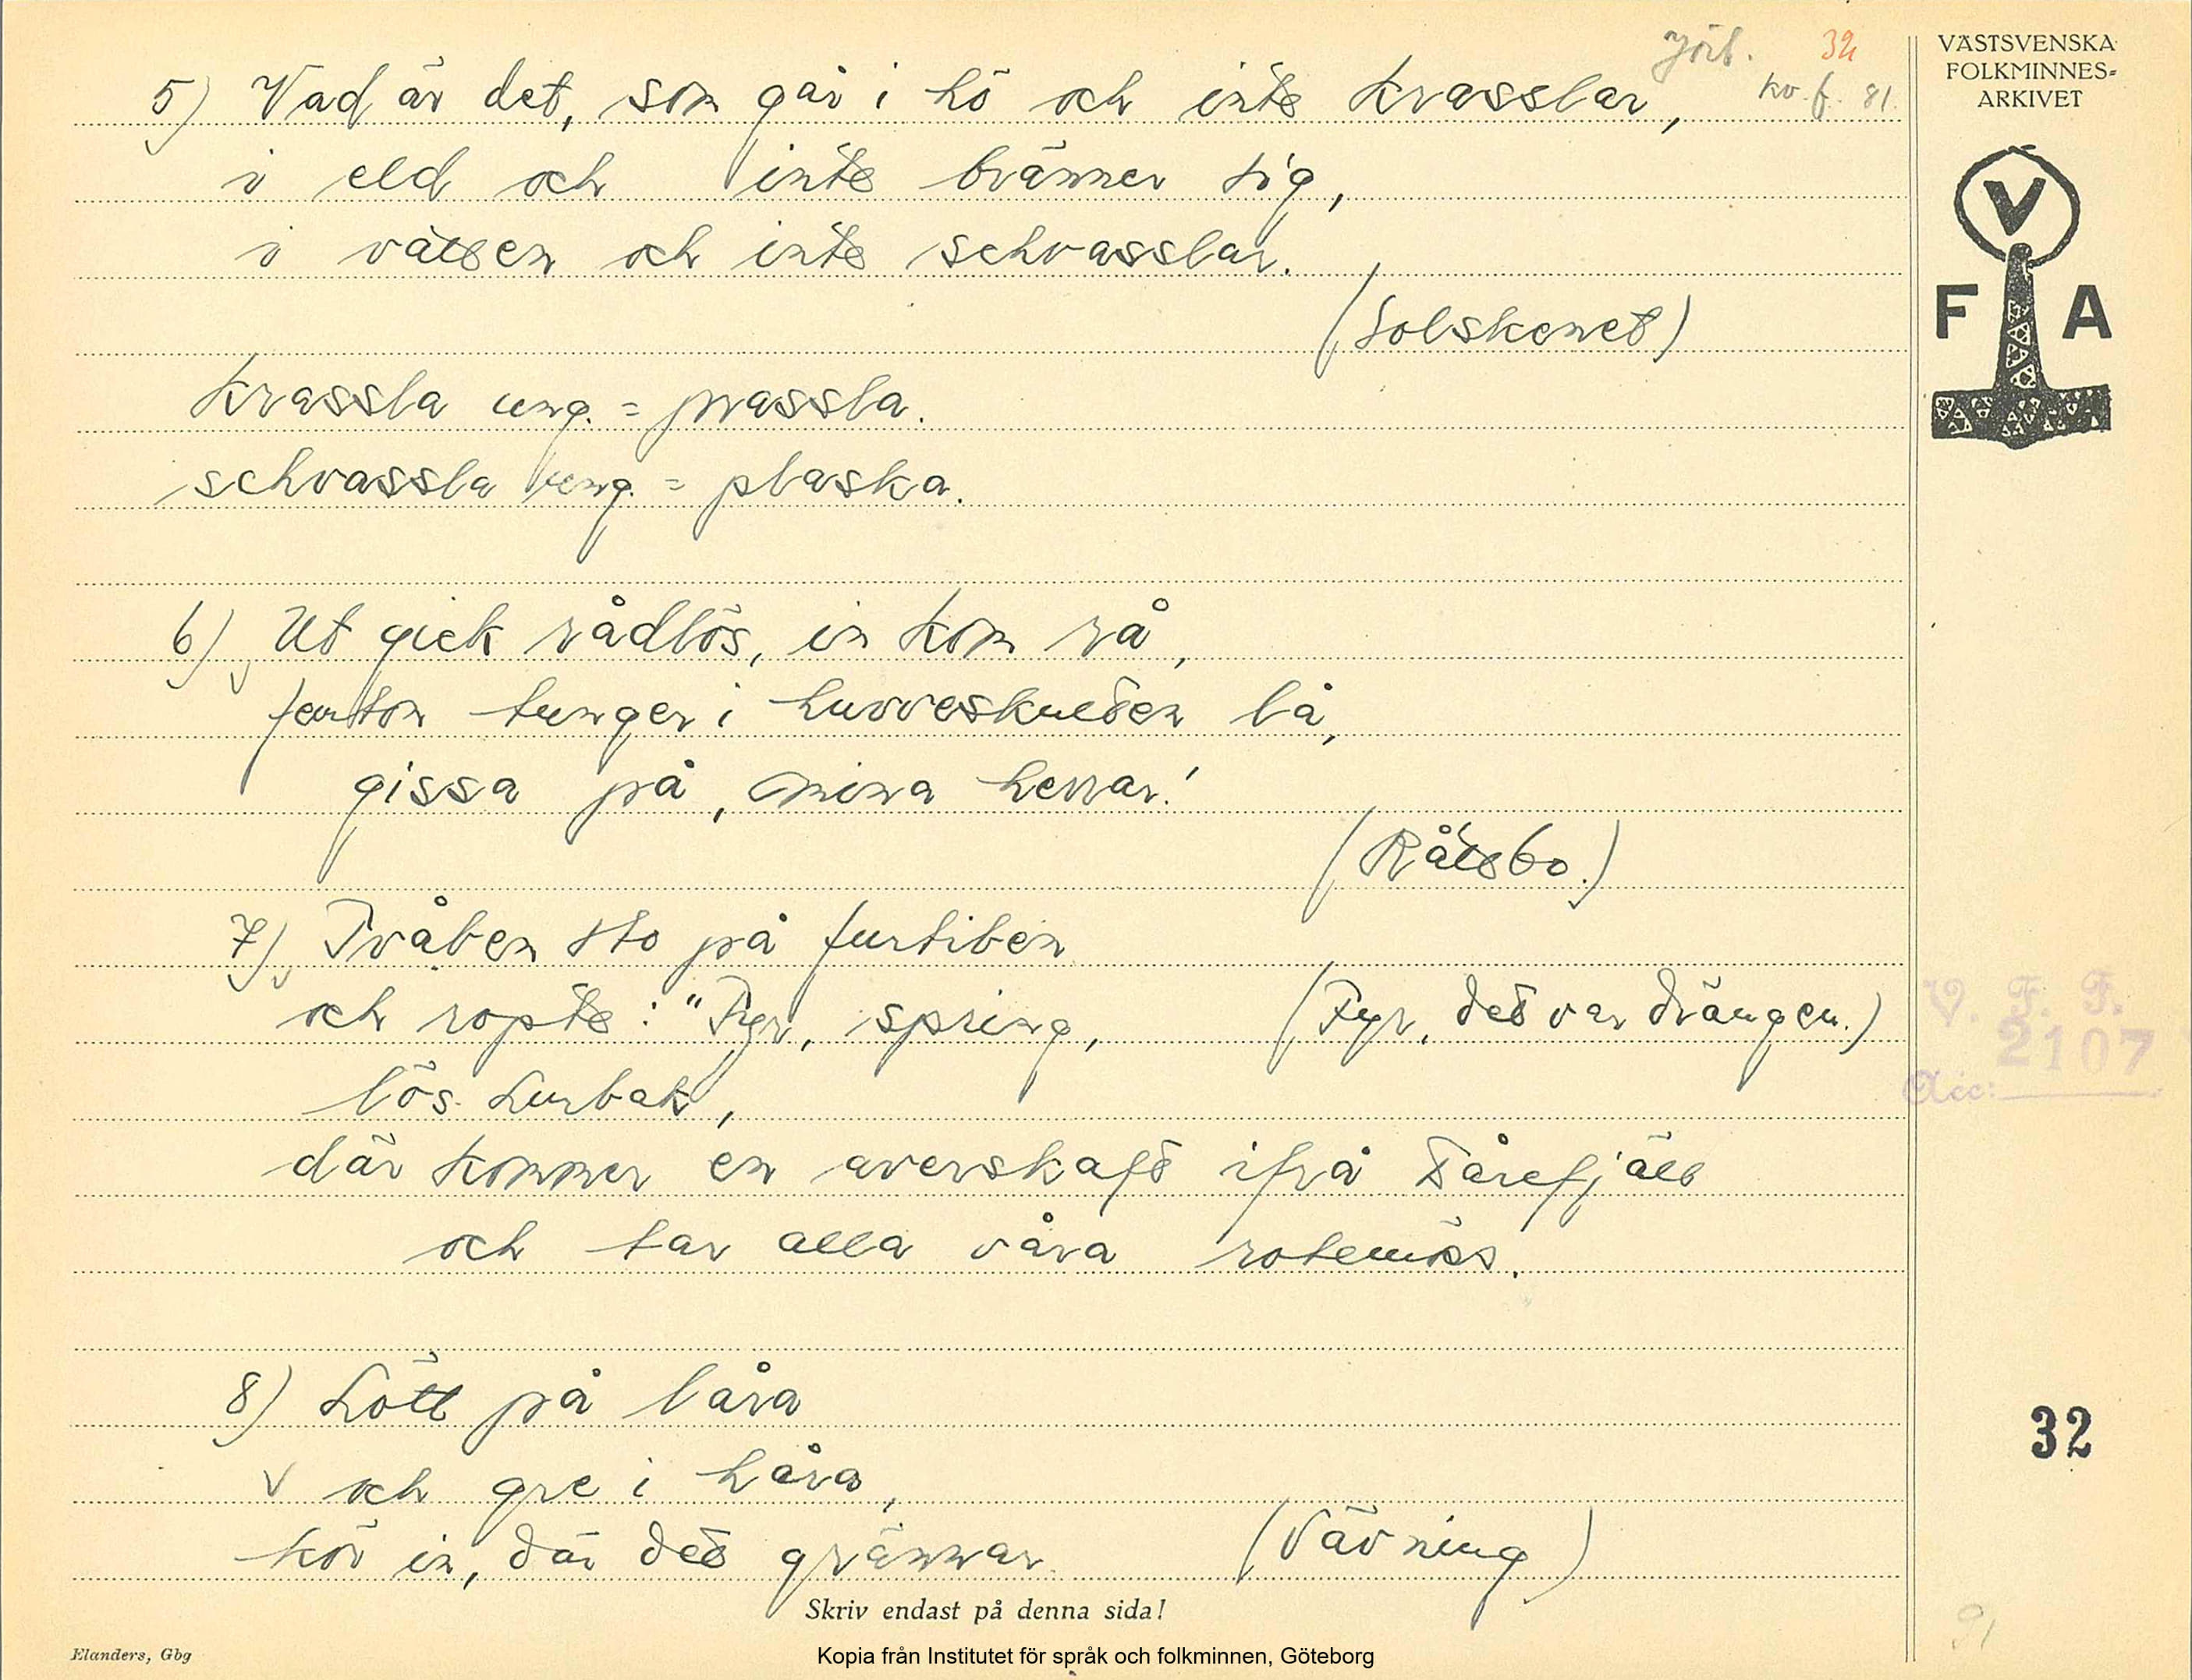 Jörl. 32
kv. f. 81.
VÄSTSVENSKA
FOLKMINNES=
ARKIVET
V
F A
5) Vad är det, som går i hö och inte krasslar,
i eld och inte bränner sig,
i vatten och inte schvasslar.
(Solskenet)
krassla ung. = prassla.
schvassla ung. = plaska.
6) Ut gick rådlös, in kom rå,
femton tunger i huvveskueden lå,
gissa på, mina herrar!
(Råttbo.)
7) Tvåben sto på furtiben
och ropte: "Fyr, spring, (Fyr, det var drängen.)
lös Lurbak,
där kommer en averskaft ifrå Fårefjäll
och tar alla våra
8) Lött på låra
v och gre i håra,
kör in, där det grännar. (Vävning)
Skriv endast på denna sida!
V. F. F.
2107
Acc:
32
91
Elanders, Gbg
Kopia från Institutet för språk och folkminnen, Göteborg